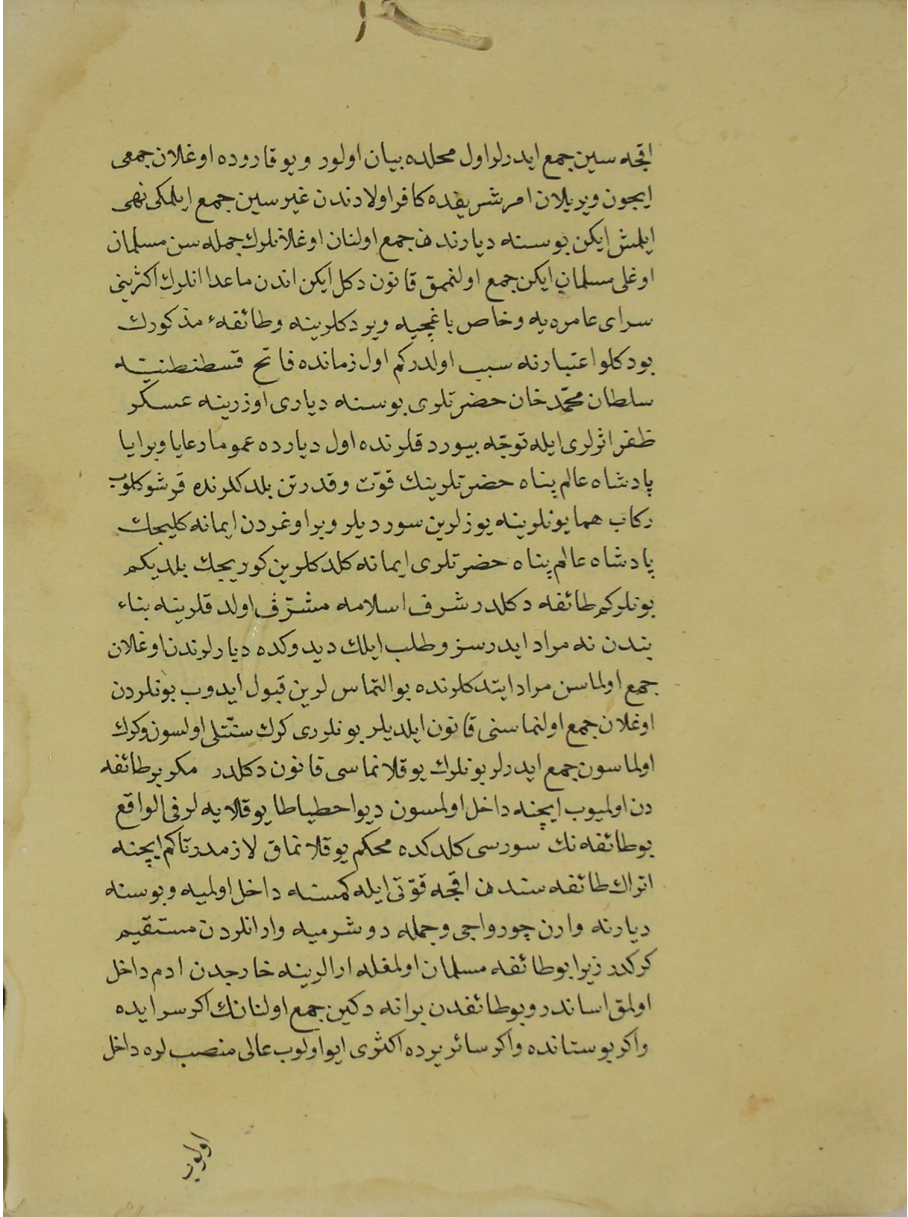 اقچه سین جمع ایدرلر اول محلده بیان اولور و یوقاروده اوغلان جمعی
ایچون ویریلان امر شریفده کافر اولادندن غیرسین جمع ایلمکی نهی
ایلمش ایکن بوسنه دیارندن جمع اولنان اوغلانلرك جمله سن مسلمان
اوغلی مسلمان ایکن جمع اولنمق قانون دکل ایکن اندن ماعدا انلرك اکثرینی
سرای عامره یه و خاص باغچیه ویردکلرینه و طائفهٔ مذکورك
بودکلو اعتبارنه سبب اولدرکم اول زمانده فاتح قسطنطنیّه
سلطان محمّد خان حضرتلری بوسنه دیاری اوزرینه عسکر
ظفر اثرلری ایله توجّه بیوردقلرنده اول دیارده عموما رعایا وبرایا
پادشاه عالم پناه حضرتلرینك قوّت وقدرتن بلدکلرنده قرشو کلوب
رکاب همایونلرینه یوزلرین سوردیلر وبر اوغردن ایمانه کلیجك
پادشاه عالم پناه حضرتلری ایمانه کلدکلرین کوریجك بلدیکم
بونلر کم طائفه دکلدر شرف اسلامه مشرّف اولدقلرینه بناء
بندن نه مراد ایدرسز وطلب ایلك دیدوکده دیارلرندن اوغلان
جمع اولماسن مراد ایتدکلرنده بو التماس لرین قبول ایدوب بونلردن
اوغلان جمع اولنماسنی قانون ایلدیلر بونلری کرك سنّتلی اولسون وکرك
اولماسون جمع ایدرلر بونلرك یوقلانماسی قانون دکلدر مکر بر طائفه
دن اولمیوب ایچنه داخل اولمسون دیو احطیاطا یوقلایه لر فی الواقع
بو طائفه نك سورسی کلدکده محکم یوقلانماق لازمدر تاکم ایچنه
اتراك طائفه سندن اقچه قوّتی ایله کمسنه داخل اولمیه وبوسنه
دیارنه وارن چورواجی وجمله دوشرمیه وارانلردن مستقیم
کرکدر زیرا بو طائفه مسلمان اولمغله ارالرینه خارجدن ادم داخل
اولمق اساندر وبو طائفدن بر انه دکین جمع اولنانك اکر سرایده
واکر بوستانده واکر سائر یرده اکثری ایو اولوب عالی منصب لره داخل